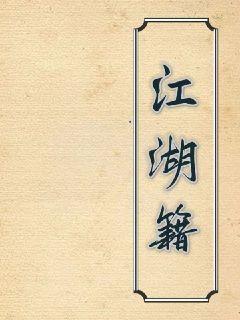 江湖籍